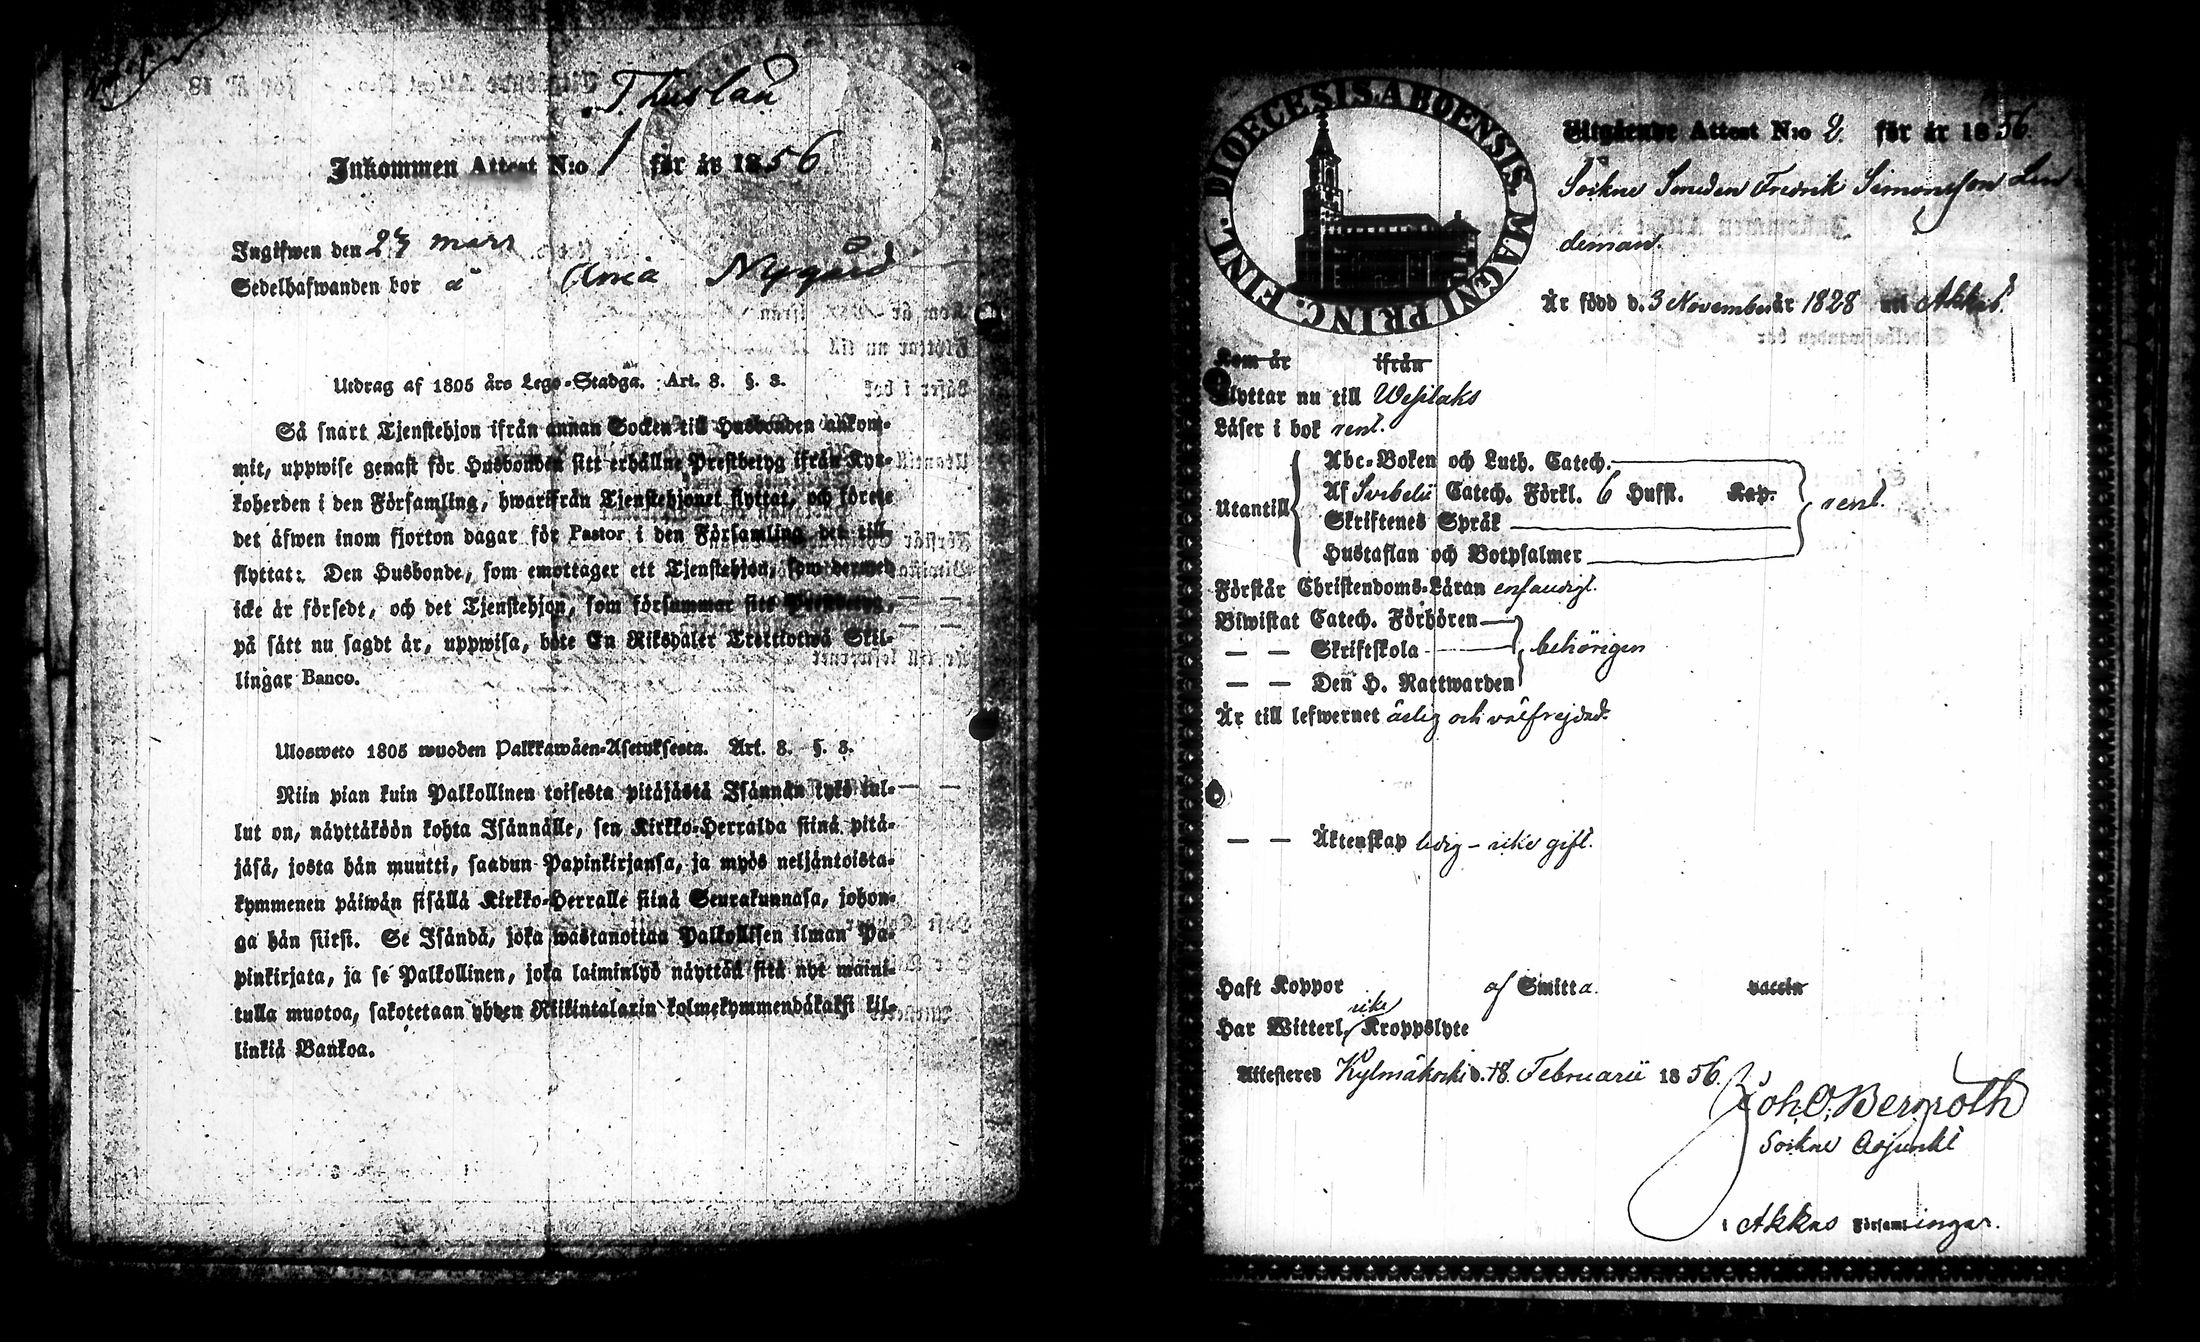 Thuslan
Inkommen Attest N:o 1 för år 1856
Ingifwen den 27 mars
Sedelhafwanden bor å Nygård
Utdrag af 1805 års Lego-Stadga. Art. 8. §. 3.
Så snart Tjenstehjon ifrån annan Socken till Husbonden ankom-
mit, uppwise genast för Husbonden sitt erhållne Prestbetyg ifrån Kyr-
koherden i den Församling, hwarifrån Tjenstehjonet flyttat, och förete
det äfwen inom fjorton dagar för Pastor i den Församling det till-
flyttat: Den Husbonde, som emottager ett Tjenstehjon, som dermed
icke är försedt, och det Tjenstehjon, som försummar sitt Prestbetyg,
på sätt nu sagdt är, uppwisa, böte En Riksdaler Trettiotwå Skil-
lingar Banco.
Ulosweto 1805 wuoden Palkkawäen-Asetuksesta. Art. 8. §. 3.
Niin pian kuin Palkollinen toisesta pitäjästä Isännän tykö tul-
lut on, näyttäköön kohta Isännälle, sen Kirkko-Herralda siinä pitä-
jäsä, josta hän muutti, saadun Papinkirjansa, ja myös neljäntoista-
kymmenen päiwän sisällä Kirkko-Herralle siinä Seurakunnasa, johon-
ga hän siirsi. Se Isändä, joka wastanottaa Palkollisen ilman Pa-
pinkirjata, ja se Palkollinen, joka laiminlyö näyttää sitä nyt maini-
tulla muotoa, sakotetaan yhden Riikintalarin kolmekymmendäkaksi kil-
linkiä Bankoa.
DIOECESIS ABOENSIS MAGNI PRINC. FINL.
Utgående Attest N:o 2. för år 1856.
Sockne Smeden Fredrik Simonsson Lin
deman.
Är född d. 3 November år 1828 uti Akkas.
Kom år ifrån
Flyttar nu till Westlaks
Läser i bok rent.
Utantill
Abc-Boken och Luth. Catech.
Af Svebelii Catech. Förkl. 6 Hufst. Kap.
Skriftenes Språk
Hustaflan och Botpsalmer
rent.
Förstår Christendoms-Läran enfaldigt.
Biwistat Catech. Förhören
— — Skriftskola
— — Den H. Nattwarden
behörigen
Är till lefwernet ärlig och välfrejdad.
— — Äktenskap ledig – icke gift.
Haft Koppor af Smitta. vaccin
Har Witterl. icke Kroppslyte
Attesteres Kylmäkoski d. 18 Februarii 1856.
Joh. O. Bergroth
Sockne Adjunkt
i Akkas Församlingar.